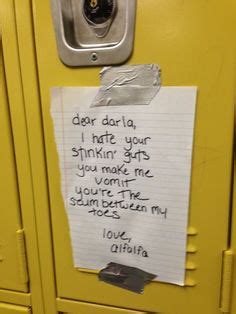 dear darla,
I hate your
stinkin' guts
you make me
vomit
you're the
scum between my
toes
love,
alfalfa